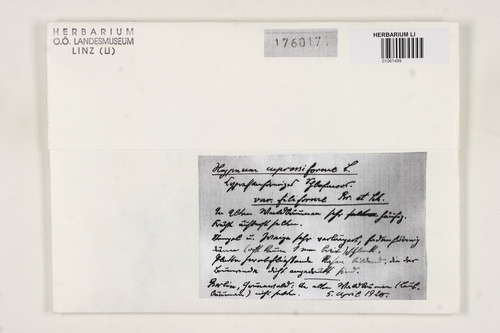 HERBARIUM
O.Ö. LANDESMUSEUM
LINZ (LI)
176017.
HERBARIUM LI
01061499
Hypnum cupressiforme L.
Cypressenförmiges Schlafmoos.
var. filiforme Br. et Sch.
In alten Waldbäumen sehr häufig.
Stengel u. Zweige sehr verlängert, fadenförmig
dünn (oft kaum 1 mm breit)
Rasen bildend, die der
dicht angedrückt sind.
Berlin, Grunewald, an alten Waldbäumen
5. April 1920.